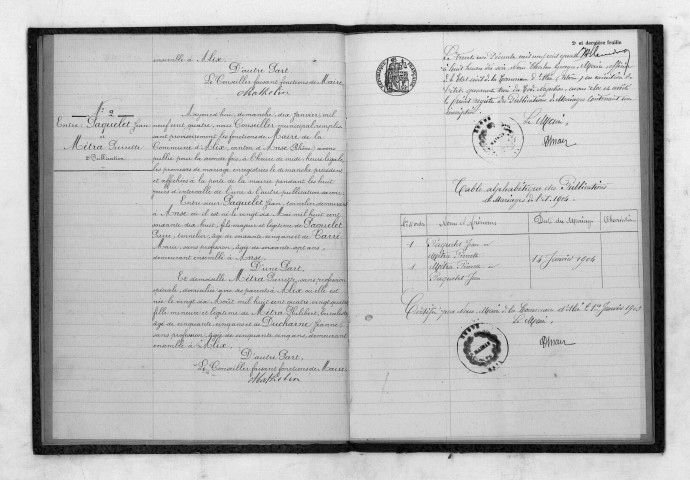 ensemble à Alix.
D'autre Part.
Le Conseiller faisant fonctions de Maire.
Mathelin
N° 2
Entre Paquelet Jean
&
Métra Pierrette
2e Publication
Aujourd'hui, dimanche, dix Janvier, mil
neuf cent, quatre, nous Conseiller municipal remplis-
sant provisoirement les fonctions de Maire de la
Commune d'Alix, canton d'Anse, Rhône, avons
publié pour la seconde fois, à l'heure de midi, heure légale,
les promesses de mariage enregistrées le dimanche précédent
et affichées à la porte de la mairie pendant les huit
jours d'intervalle de l'une à l'autre publication.
Entre sieur Paquelet Jean, tonnelier, demeurant
à Anse où il est né le vingt six Mai mil huit cent
soixante dix huit, fils majeur et légitime de Paquelet
Pierre, tonnelier, âgé de soixante cinq ans et de Carré
Marie, sans profession, âgée de soixante sept ans,
demeurant ensemble à Anse.
D'une Part.
Et demoiselle Métra Pierrette, sans profession
spéciale, domiciliée avec ses parents à Alix où elle est
née le vingt six Août mil huit cent quatre vingt
fille mineure et légitime de Métra Philibert,
âgé de cinquante cinq ans et de Ducharne Jeanne,
sans profession, âgée de cinquante cinq ans, demeurant
ensemble à Alix.
D'autre Part.
Le Conseiller faisant fonctions de Maire.
Mathelin
2e et dernière feuille
Le trente un Décembre mil neuf cent quatre
à huit heures du soir, Nous
de l'Etat civil de la Commune d'Alix (Rhône) en exécution de
le présent registre de Publications de Mariages contenant
Le Maire,
MAIRIE
Table alphabétique des Publications
de Mariages de l'an 1904.
Nos d'ordre Noms et Prénoms Date des Mariages Observations
1 Paquelet Jean et
Métra Pierrette
1 Métra Pierrette et
Paquelet Jean
14 Janvier 1904
Certifié par Nous Maire de la Commune d'Alix le 1er Janvier 1905
Le Maire,
MAIRIE